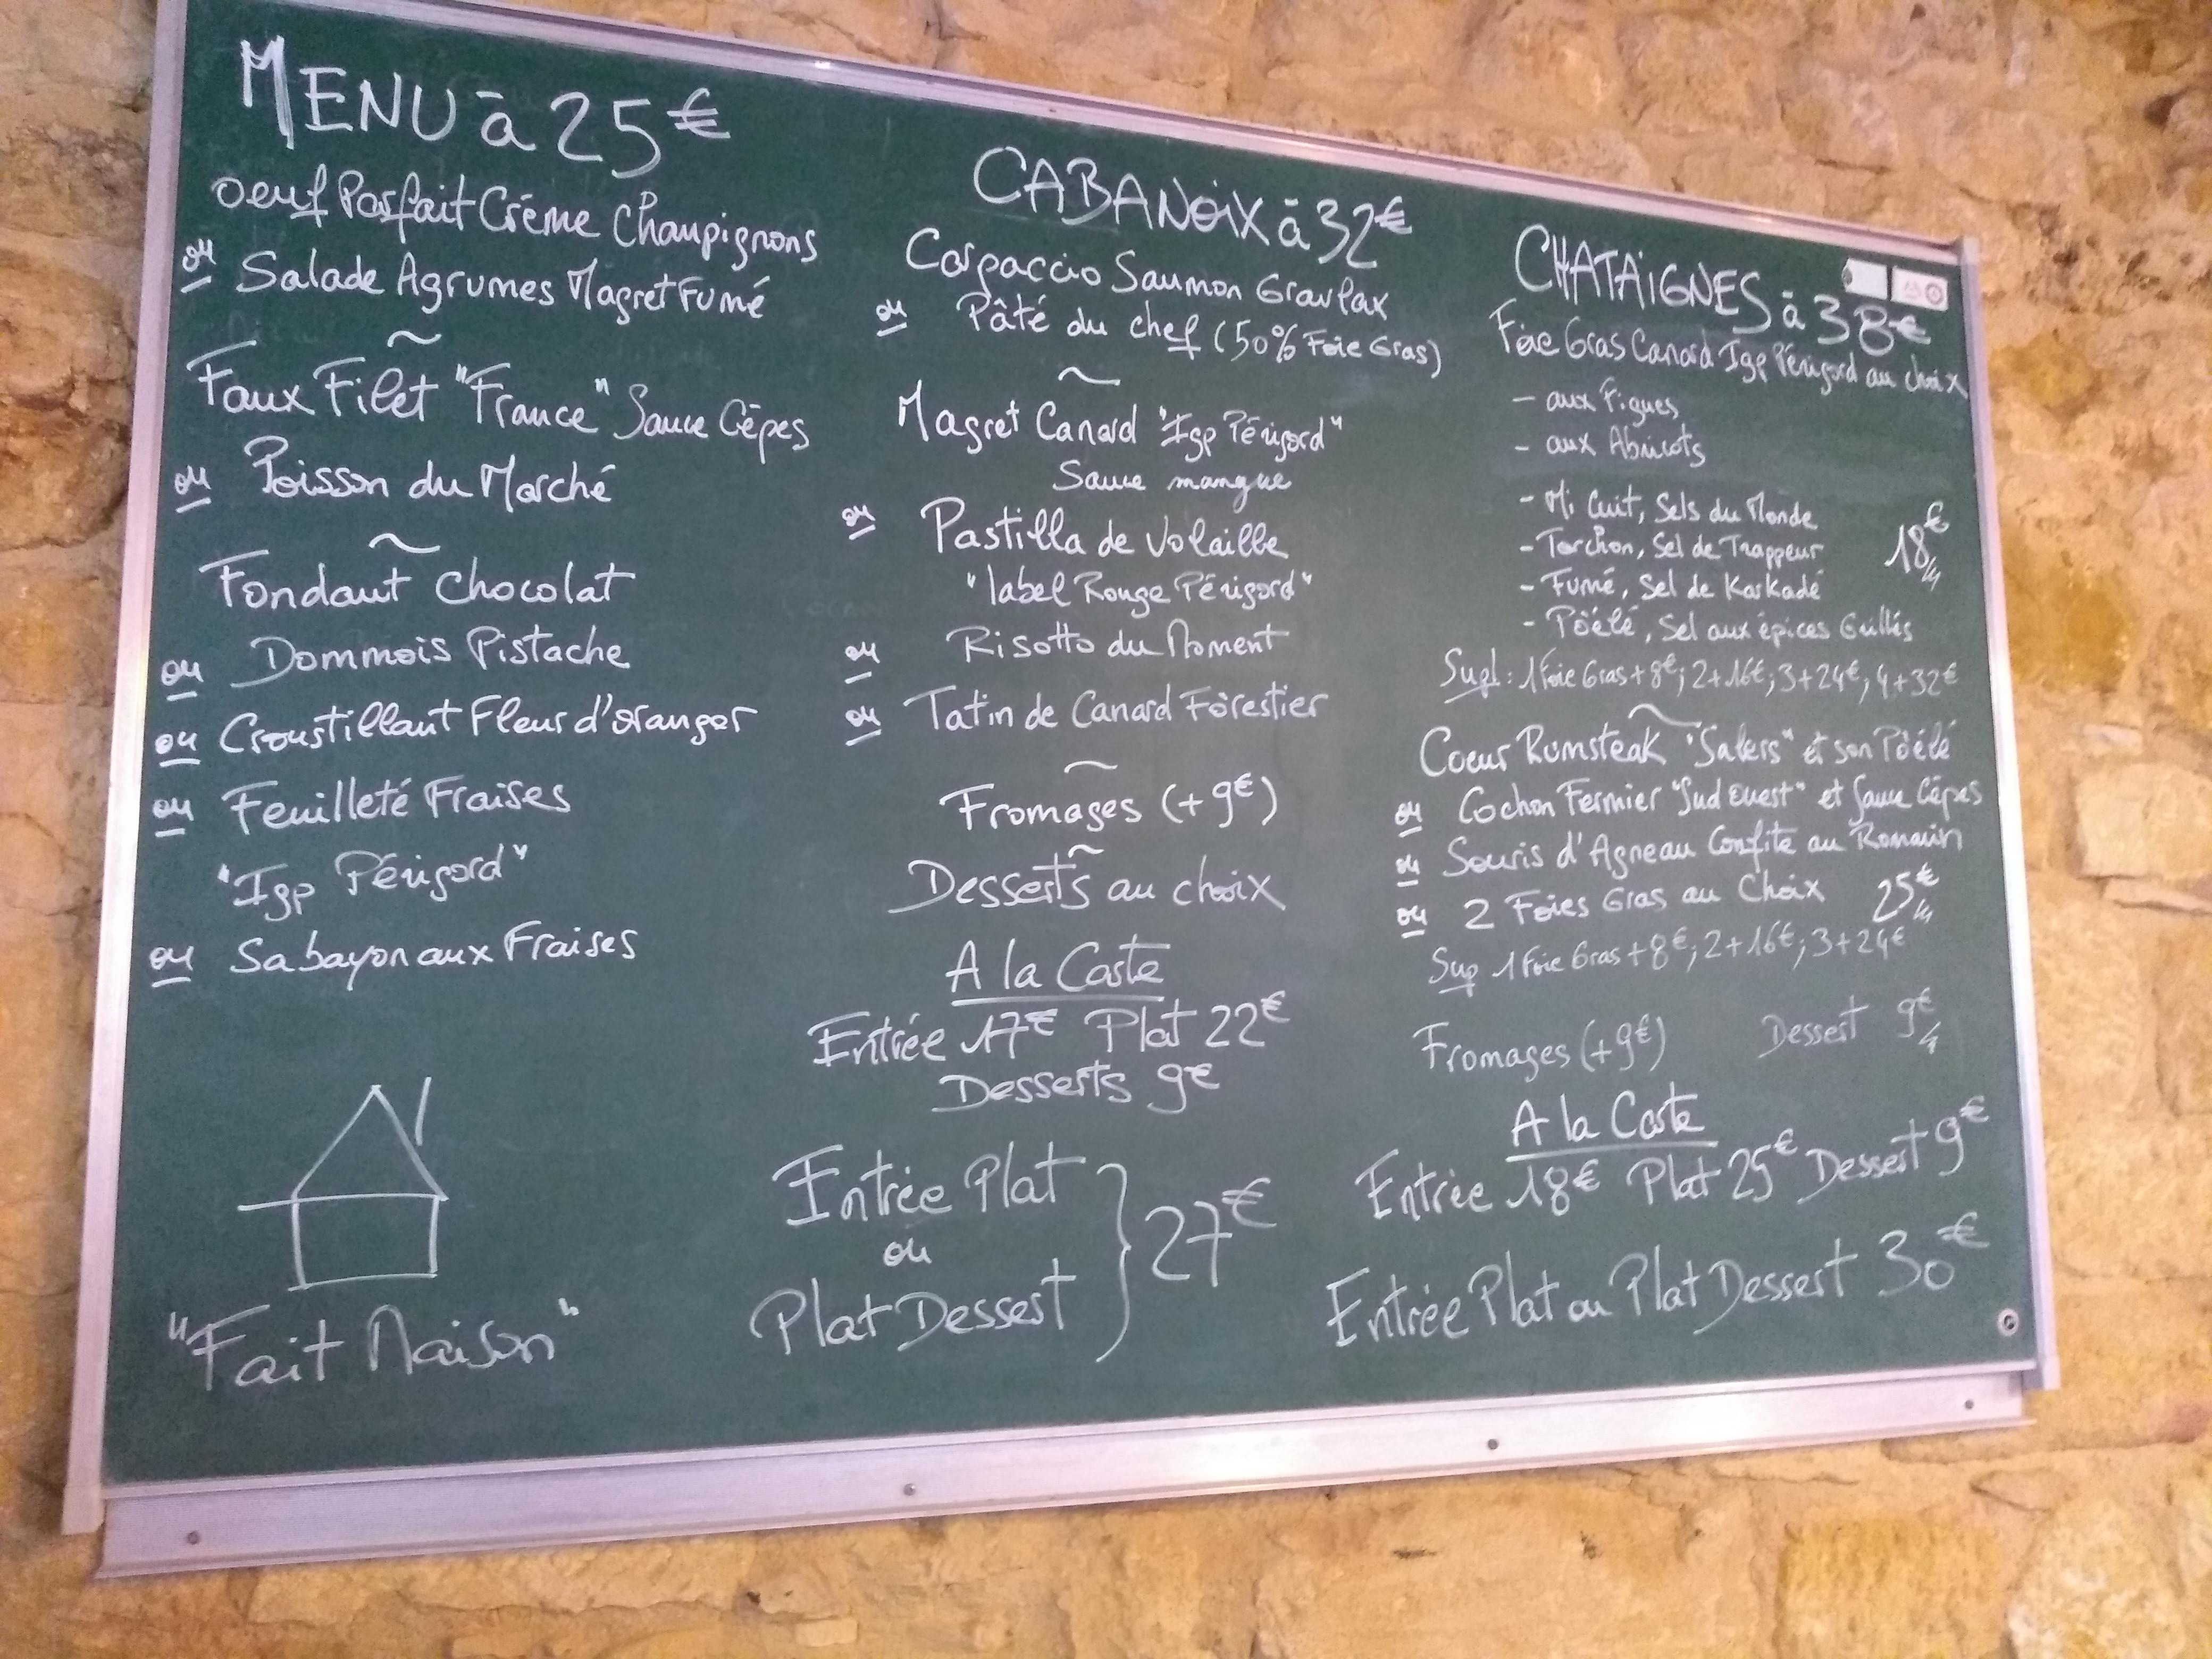 MENU à 25€
Oeuf Parfait Crème Champignons
ou Salade Agrumes Magret Fumé
~
Faux Filet "France" Sauce Cêpes
ou Poisson du Marché
~
Fondant Chocolat
ou Dommois Pistache
ou Croustillant Fleur d'oranger
ou Feuilleté Fraises
"Igp Périgord"
ou Sabayon aux Fraises
"Fait Maison"
CABANOIX à 32€
Carpaccio Saumon Gravlax
ou Pâté du chef (50% Foie Gras)
~
Magret Canard "Igp Périgord"
Sauce mangue
ou Pastilla de Volaille
"label Rouge Périgord"
ou Risotto du Moment
ou Tatin de Canard Forestier
~
Fromages (+9€)
~
Desserts au choix
A la Carte
Entrée 17€ Plat 22€
Desserts 9€
Entrée Plat
ou
Plat Dessert
27€
CHATAIGNES à 38€
Foie Gras Canard Igp Périgord au choix
- aux Figues
- aux Abricots
- Mi Cuit, Sels du Monde
- Torchon, Sel de Trappeur
- Fumé, Sel de Karkadé
- Pôélé, Sel aux épices Grillés
18€
Supl : 1 Foie Gras + 8€; 2 + 16€; 3 + 24€; 4 + 32€
~
Coeur Rumsteak "Salers" et son Pôélé
ou Cochon Fermier "Sud Ouest" et Sauce Cêpes
ou Souris d'Agneau Confite au Romarin
ou 2 Foies Gras au Choix 25€
Sup 1 Foie Gras + 8€; 2 + 16€; 3 + 24€
Fromages (+9€) Dessert 9€
A la Carte
Entrée 18€ Plat 25€ Dessert 9€
Entrée Plat ou Plat Dessert 30€